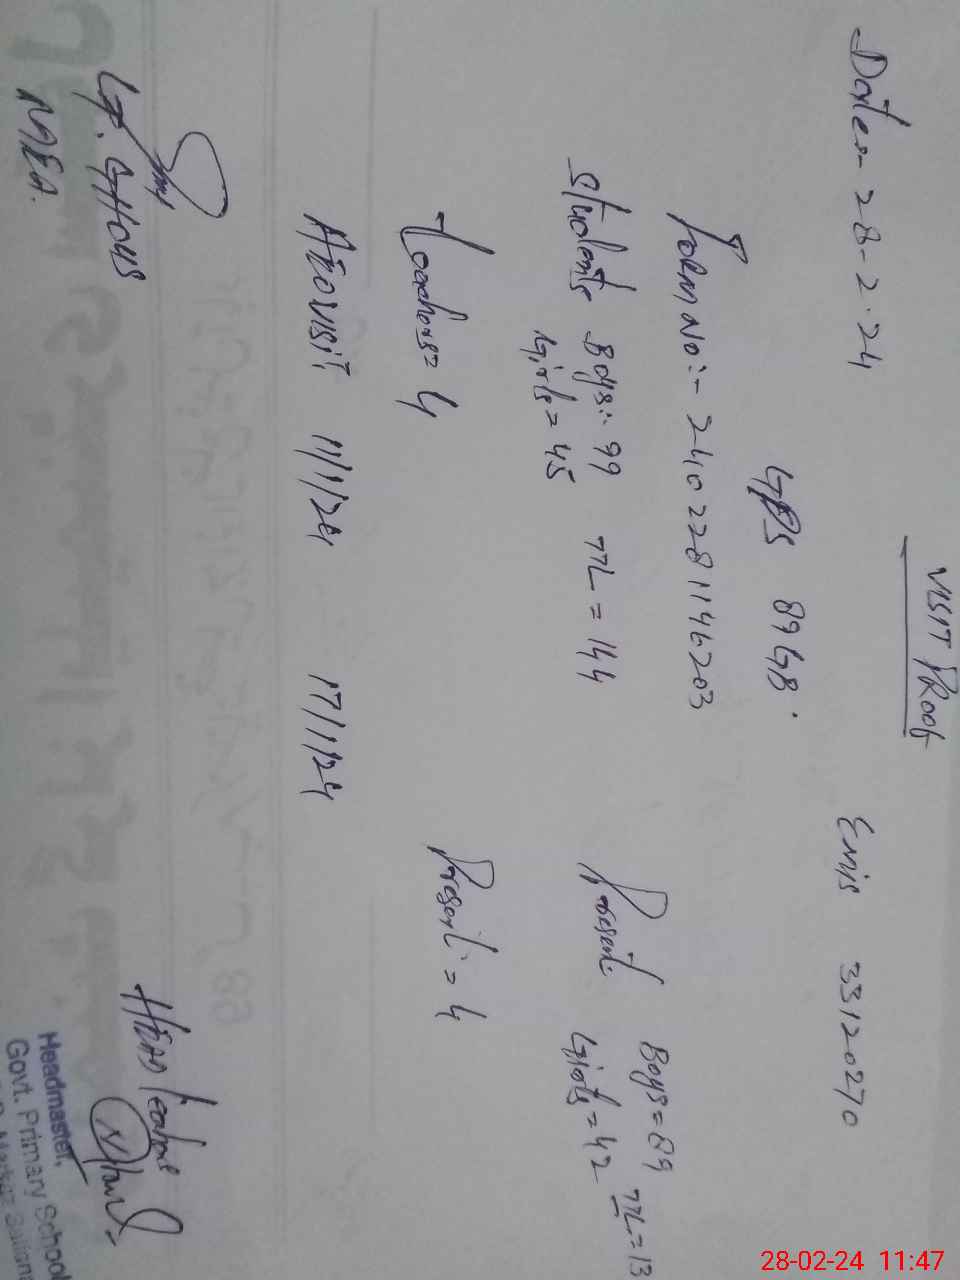 VISIT PRoof
Date:- 28-2-24
Emis 33120270
GPS 89 GB.
Form No:- 2402281146203
Students Boys:- 99 TTL = 144
Girls = 45
Present Boys = 89 TTL = 13
Girls = 42
Teachers = 4
Present = 4
AEO Visit 11/1/24 17/1/24
G. GHOUS
MEA.
HEAD Teacher
Headmaster,
Govt. Primary School
28-02-24 11:47